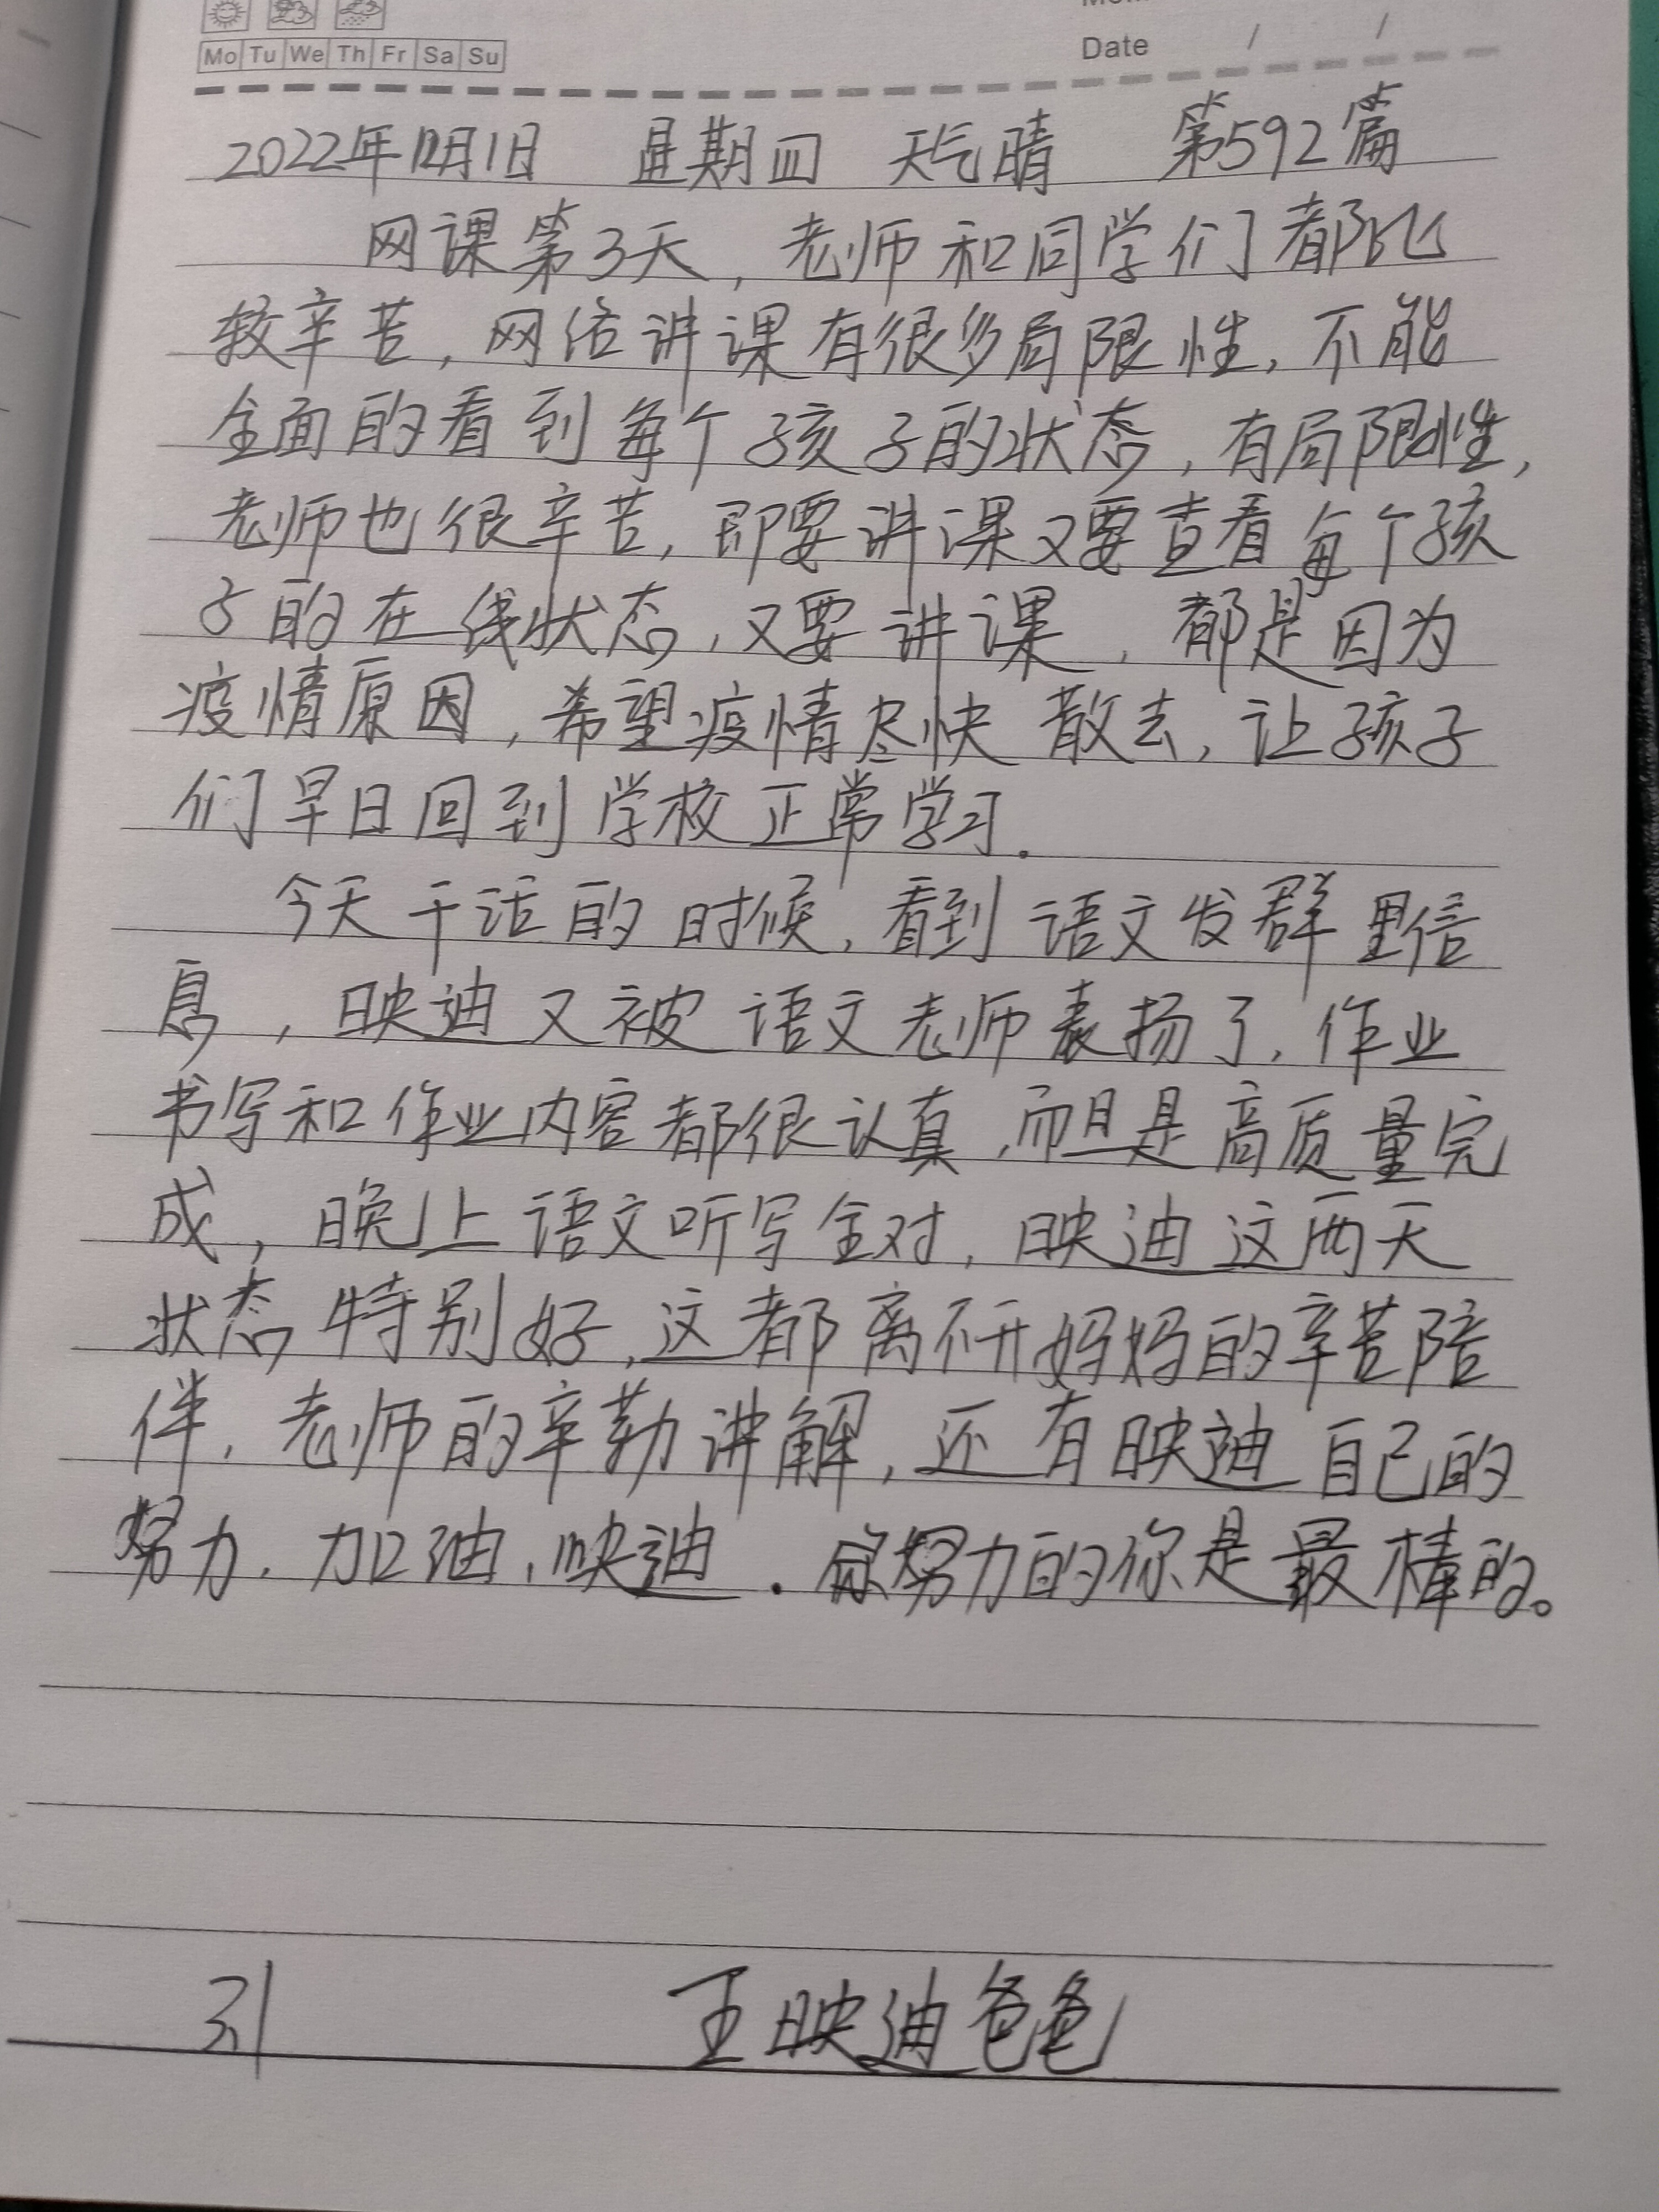 Mo Tu We Th Fr Sa Su
Date / /
2022年12月1日 星期四 天气晴 第592篇
网课第3天，老师和同学们都比
较辛苦，网络讲课有很多局限性，不能
全面的看到每个孩子的状态，有局限性，
老师也很辛苦，即要讲课又要查看每个孩
子的在线状态，又要讲课，都是因为
疫情原因，希望疫情尽快散去，让孩子
们早日回到学校正常学习.
今天干活的时候，看到语文发群里信
息，映迪又被语文老师表扬了，作业
书写和作业内容都很认真，而且是高质量完
成，晚上语文听写全对，映迪这两天
状态特别好，这都离不开妈妈的辛苦陪
伴，老师的辛勤讲解，还有映迪自己的
努力，加油，映迪．你努力的你是最棒的。
引 王映迪爸爸